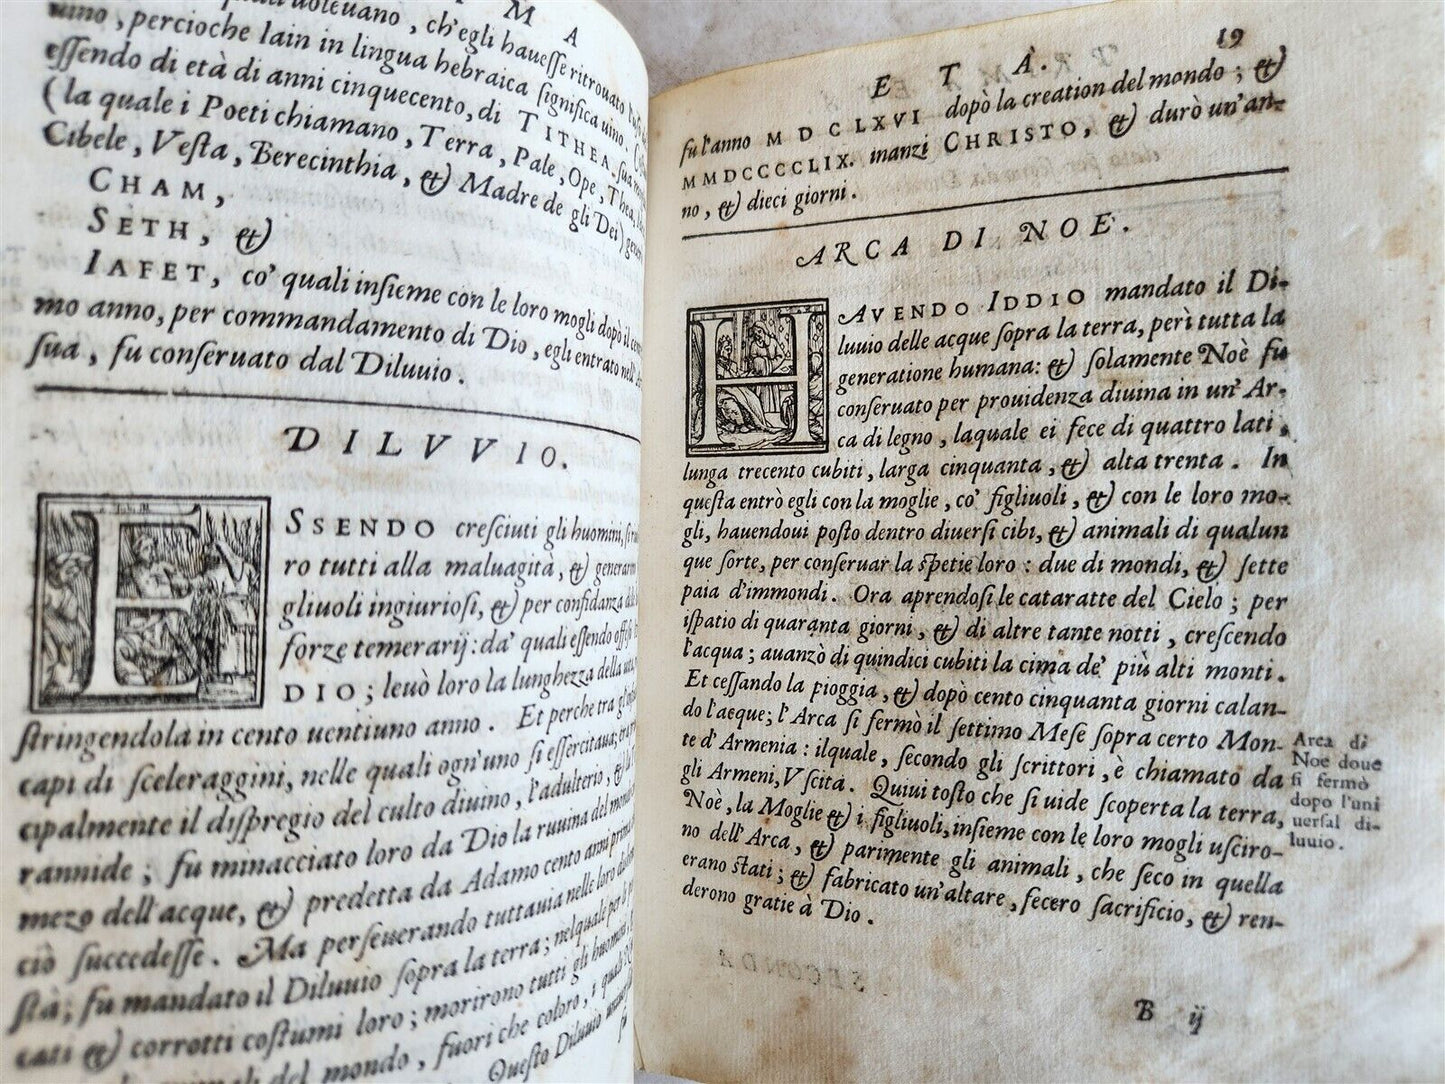 I M A
uoleuano, ch'egli hauesse ritrouato l'uso
uino, percioche Iain in lingua hebraica significa uino.
essendo di età di anni cinquecento, di TITHEA sua
(la quale i Poeti chiamano, Terra, Pale, Ope, Thea,
Cibele, Vesta, Berecinthia, & Madre de gli Dei)
CHAM,
SETH, &
IAFET, co' quali insieme con le loro mogli dopò il
mo anno, per commandamento di Dio, egli entrato nell'
sua, fu conseruato dal Diluuio.
DILVVIO.
ESSENDO cresciuti gli huomini,
ro tutti alla maluagità, &
gliuoli ingiuriosi, & per confidanza
forze temerarij: da' quali essendo
DIO; leuò loro la lunghezza della
stringendola in cento uentiuno anno. Et perche tra
capi di sceleraggini, nelle quali ogn'uno si essercitaua;
cipalmente il dispregio del culto diuino, l'adulterio, &
rannide; fu minacciato loro da Dio la ruuina del
mezo dell'acque, & predetta da Adamo cento anni
ciò succedesse. Ma perseuerando tuttauia nelle loro
stà; fu mandato il Diluuio sopra la terra; nelquale per
cati & corrotti costumi loro; morirono tutti gli huomini
animali del mondo, fuori che coloro, i quali
Questo Diluuio
E T A. 19
fu l'anno MDCLXVI dopò la creation del mondo; &
MMDCCCCLIX. inanzi CHRISTO, & durò un'an-
no, & dieci giorni.
ARCA DI NOE.
HAVENDO IDDIO mandato il Di-
luuio delle acque sopra la terra, perì tutta la
generatione humana: & solamente Noè fu
conseruato per prouidenza diuina in un' Ar-
ca di legno, laquale ei fece di quattro lati,
lunga trecento cubiti, larga cinquanta, & alta trenta. In
questa entrò egli con la moglie, co' figliuoli, & con le loro mo-
gli, hauendoui posto dentro diuersi cibi, & animali di qualun
que sorte, per conseruar la spetie loro: due di mondi, & sette
paia d'immondi. Ora aprendosi le cataratte del Cielo; per
ispatio di quaranta giorni, & di altre tante notti, crescendo
l'acqua; auanzò di quindici cubiti la cima de' più alti monti.
Et cessando la pioggia, & dopò cento cinquanta giorni calan-
do l'acque; l'Arca si fermò il settimo Mese sopra certo Mon-
te d'Armenia: ilquale, secondo gli scrittori, è chiamato da
gli Armeni, Vscita. Quiui tosto che si uide scoperta la terra,
Noè, la Moglie & i figliuoli, insieme con le loro mogli usciro-
no dell'Arca, & parimente gli animali, che seco in quella
erano stati; & fabricato un'altare, fecero sacrificio, & ren-
derono gratie à Dio.
Arca di
Noe doue
si fermò
dopo l'uni
uersal di-
luuio.
B ij